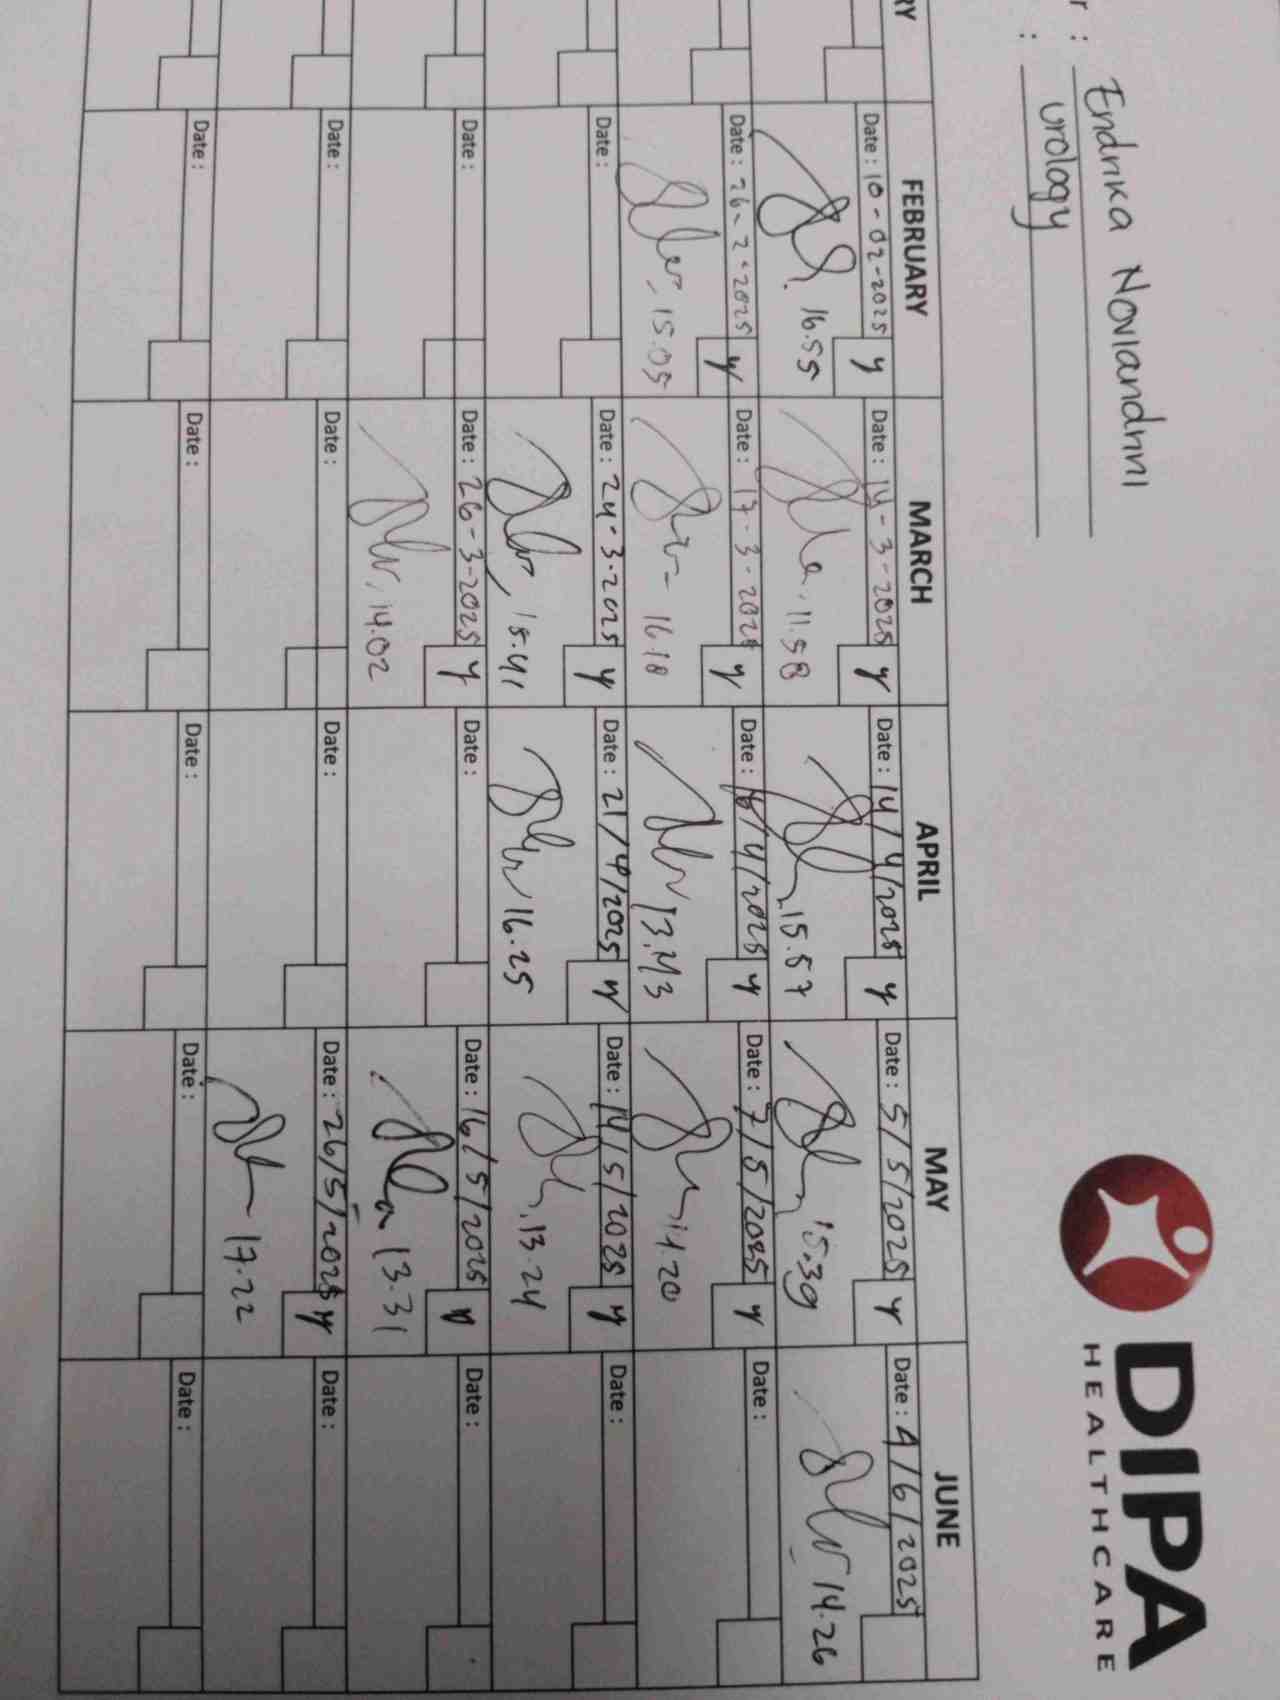 r : Endrika Noviandrini
: Urology
DIPA
HEALTHCARE
RY FEBRUARY MARCH APRIL MAY JUNE
Date : 10-02-2025 y Date : 14-3-2025 y Date : 14/4/2025 y Date : 5/5/2025 y Date : 4/6/2025
16.55 11.58 15.57 15.39 14.26
Date : 26-2-2025 y Date : 17-3-2025 y Date : 16/4/2025 y Date : 7/5/2025 y Date :
15.05 16.18 13.43 14.20
Date : Date : 24-3-2025 y Date : 21/4/2025 y Date : 14/5/2025 y Date :
15.41 16.25 13.24
Date : Date : 26-3-2025 y Date : Date : 16/5/2025 Date :
14.02 13.31
Date : Date : Date : Date : 26/5/2025 y Date :
17.22
Date : Date : Date : Date : Date :